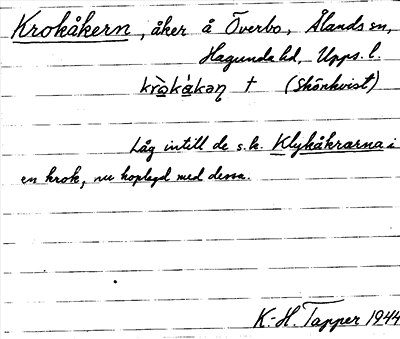 Krokåkern, åker å Överbo, Ålands sn,
Hagunda hd, Upps. l.
krò̱kà̱kəɳ † (Skönkvist)
Låg intill de s.k. Klykåkrarna i
en krok, nu hoplagd med dessa.
K.-H. Tapper 1944